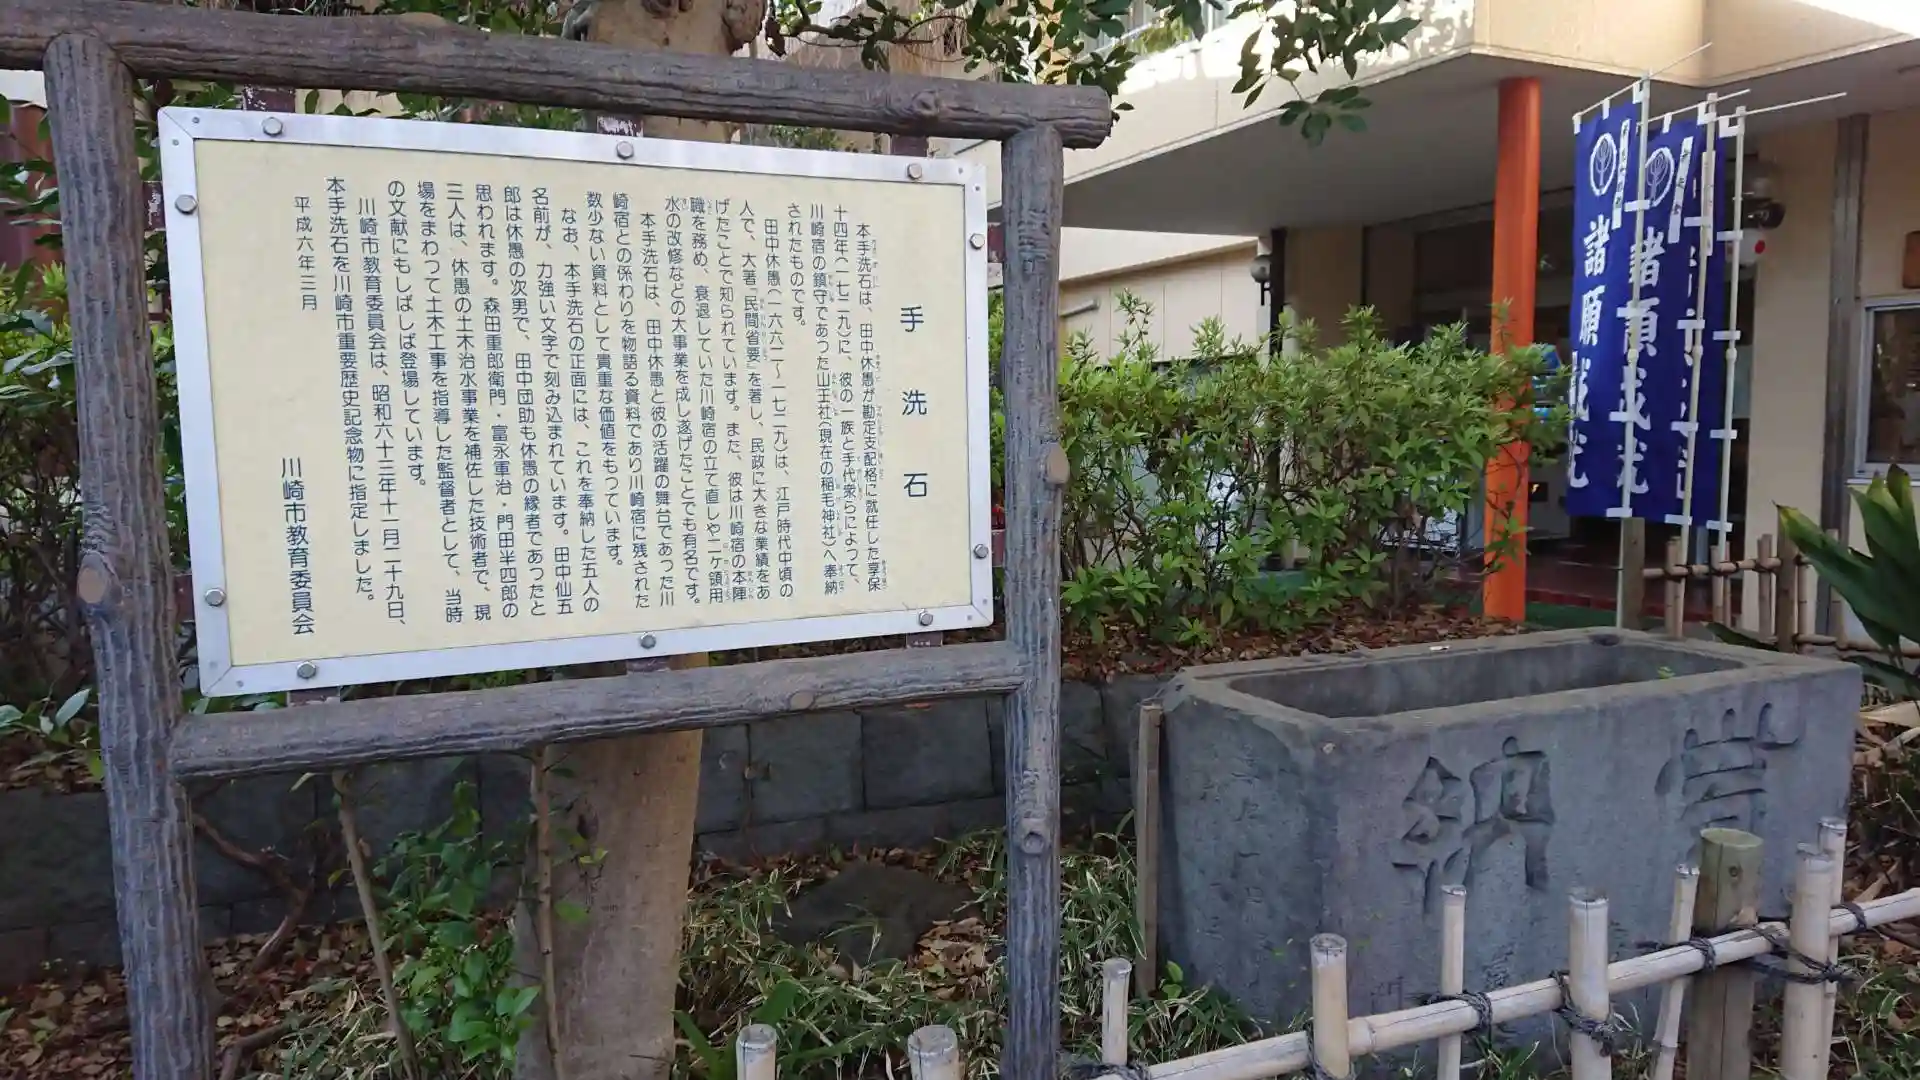 手洗石
本手洗石は、田中休愚が勘定支配格に就任した享保
十四年(一七二九)に、彼の一族と手代衆らによって、
川崎宿の鎮守であった山王社(現在の稲毛神社)へ奉納
されたものです。
田中休愚(一六六二〜一七二九)は、江戸時代中頃の
人で、大著「民間省要」を著し、民政に大きな業績をあ
げたことで知られています。また、彼は川崎宿の本陣
職を務め、衰退していた川崎宿の立て直しや二ヶ領用
水の改修などの大事業を成し遂げたことでも有名です。
本手洗石は、田中休愚と彼の活躍の舞台であった川
崎宿との係わりを物語る資料であり川崎宿に残された
数少ない資料として貴重な価値をもつています。
なお、本手洗石の正面には、これを奉納した五人の
名前が、力強い文字で刻み込まれています。田中仙五
郎は休愚の次男で、田中団助も休愚の縁者であったと
思われます。森田重郎衛門・富永軍治・門田半四郎の
三人は、休愚の土木治水事業を補佐した技術者で、現
場をまわつて土木工事を指導した監督者として、当時
の文献にもしばしば登場しています。
川崎市教育委員会は、昭和六十三年十一月二十九日、
本手洗石を川崎市重要歴史記念物に指定しました。
平成六年三月
川崎市教育委員会
諸願成就
諸願成就
奉納